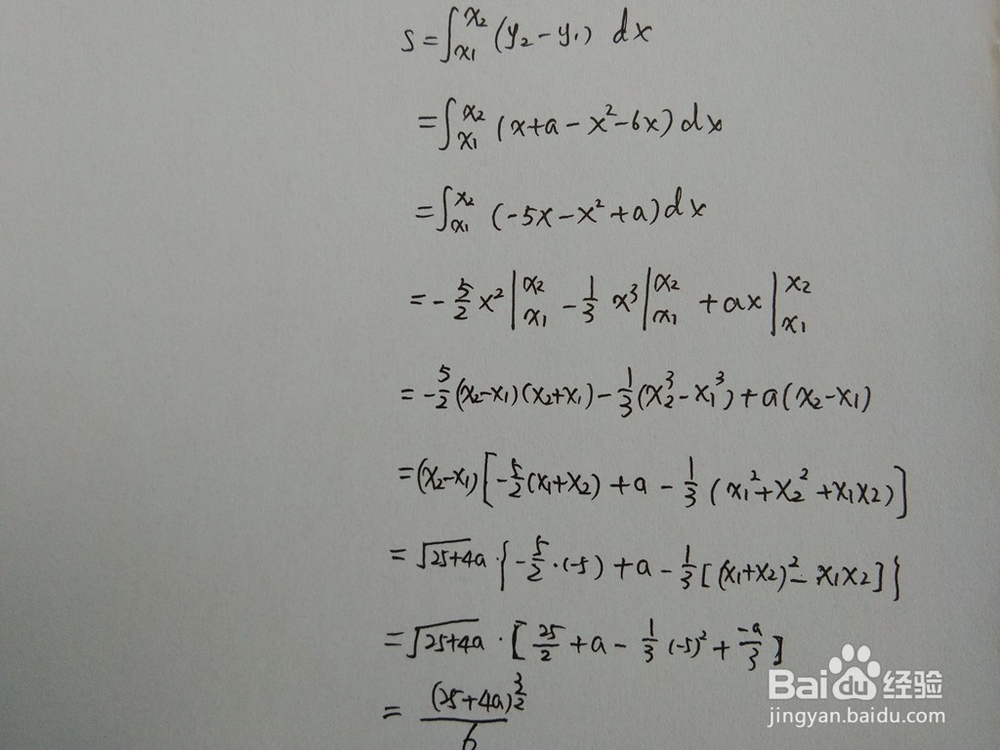 S = ∫_{x1}^{x2} (y₂ - y₁) dx
= ∫_{x1}^{x2} (x+a - x² - 6x) dx
= ∫_{x1}^{x2} (-5x - x² + a) dx
= - 5/2 x² |_{x1}^{x2} - 1/3 x³ |_{x1}^{x2} + ax |_{x1}^{x2}
= - 5/2 (x₂-x₁)(x₂+x₁) - 1/3 (x₂³ - x₁³) + a(x₂-x₁)
= (x₂-x₁) [ - 5/2 (x₁+x₂) + a - 1/3 (x₁² + x₂² + x₁x₂) ]
= √(25+4a) · { - 5/2 · (-5) + a - 1/3 [ (x₁+x₂)² - x₁x₂ ] }
= √(25+4a) · [ 25/2 + a - 1/3 (-5)² + -a/3 ]
= (25+4a)^{3/2} / 6
Baidu 经验
jingyan.baidu.com